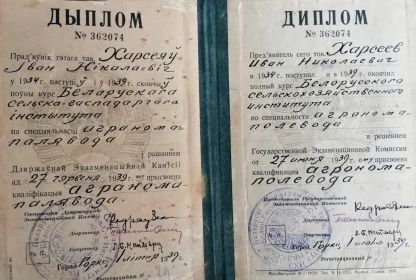 ДЫПЛОМ
№ 362074
Прад'яўнік гэтага тав. Харсеяў
Іван Нікалаевіч
у 1934 г. паступіў і ў 1939 г. скончыў
поўны курс Беларускага
сельска-гаспадарчага
інстытута
па спецыяльнасці агранома
палявода
і рашэннем
Дзяржаўнай Экзаменацыйнай Камісіі
ад 27 чэрвеня 1939 г. яму прысвоена
кваліфікацыя агранома-
палявода.
Дырэктар
Сакратар
Горад Горкі 1939 г.
ДИПЛОМ
№ 362074
Пред'явитель сего тов. Харсеев
Иван Николаевич
в 1934 г. поступил и в 1939 г. окончил
полный курс Белорусского
сельскохозяйственного
института
по специальности агронома-
полевода
и решением
Государственной Экзаменационной Комиссии
от 27 июня 1939 г. ему присвоена
квалификация агронома-
полевода.
Председатель Государственной
Экзаменационной Комиссии
Директор
Секретарь
Город Горки 1939 г.